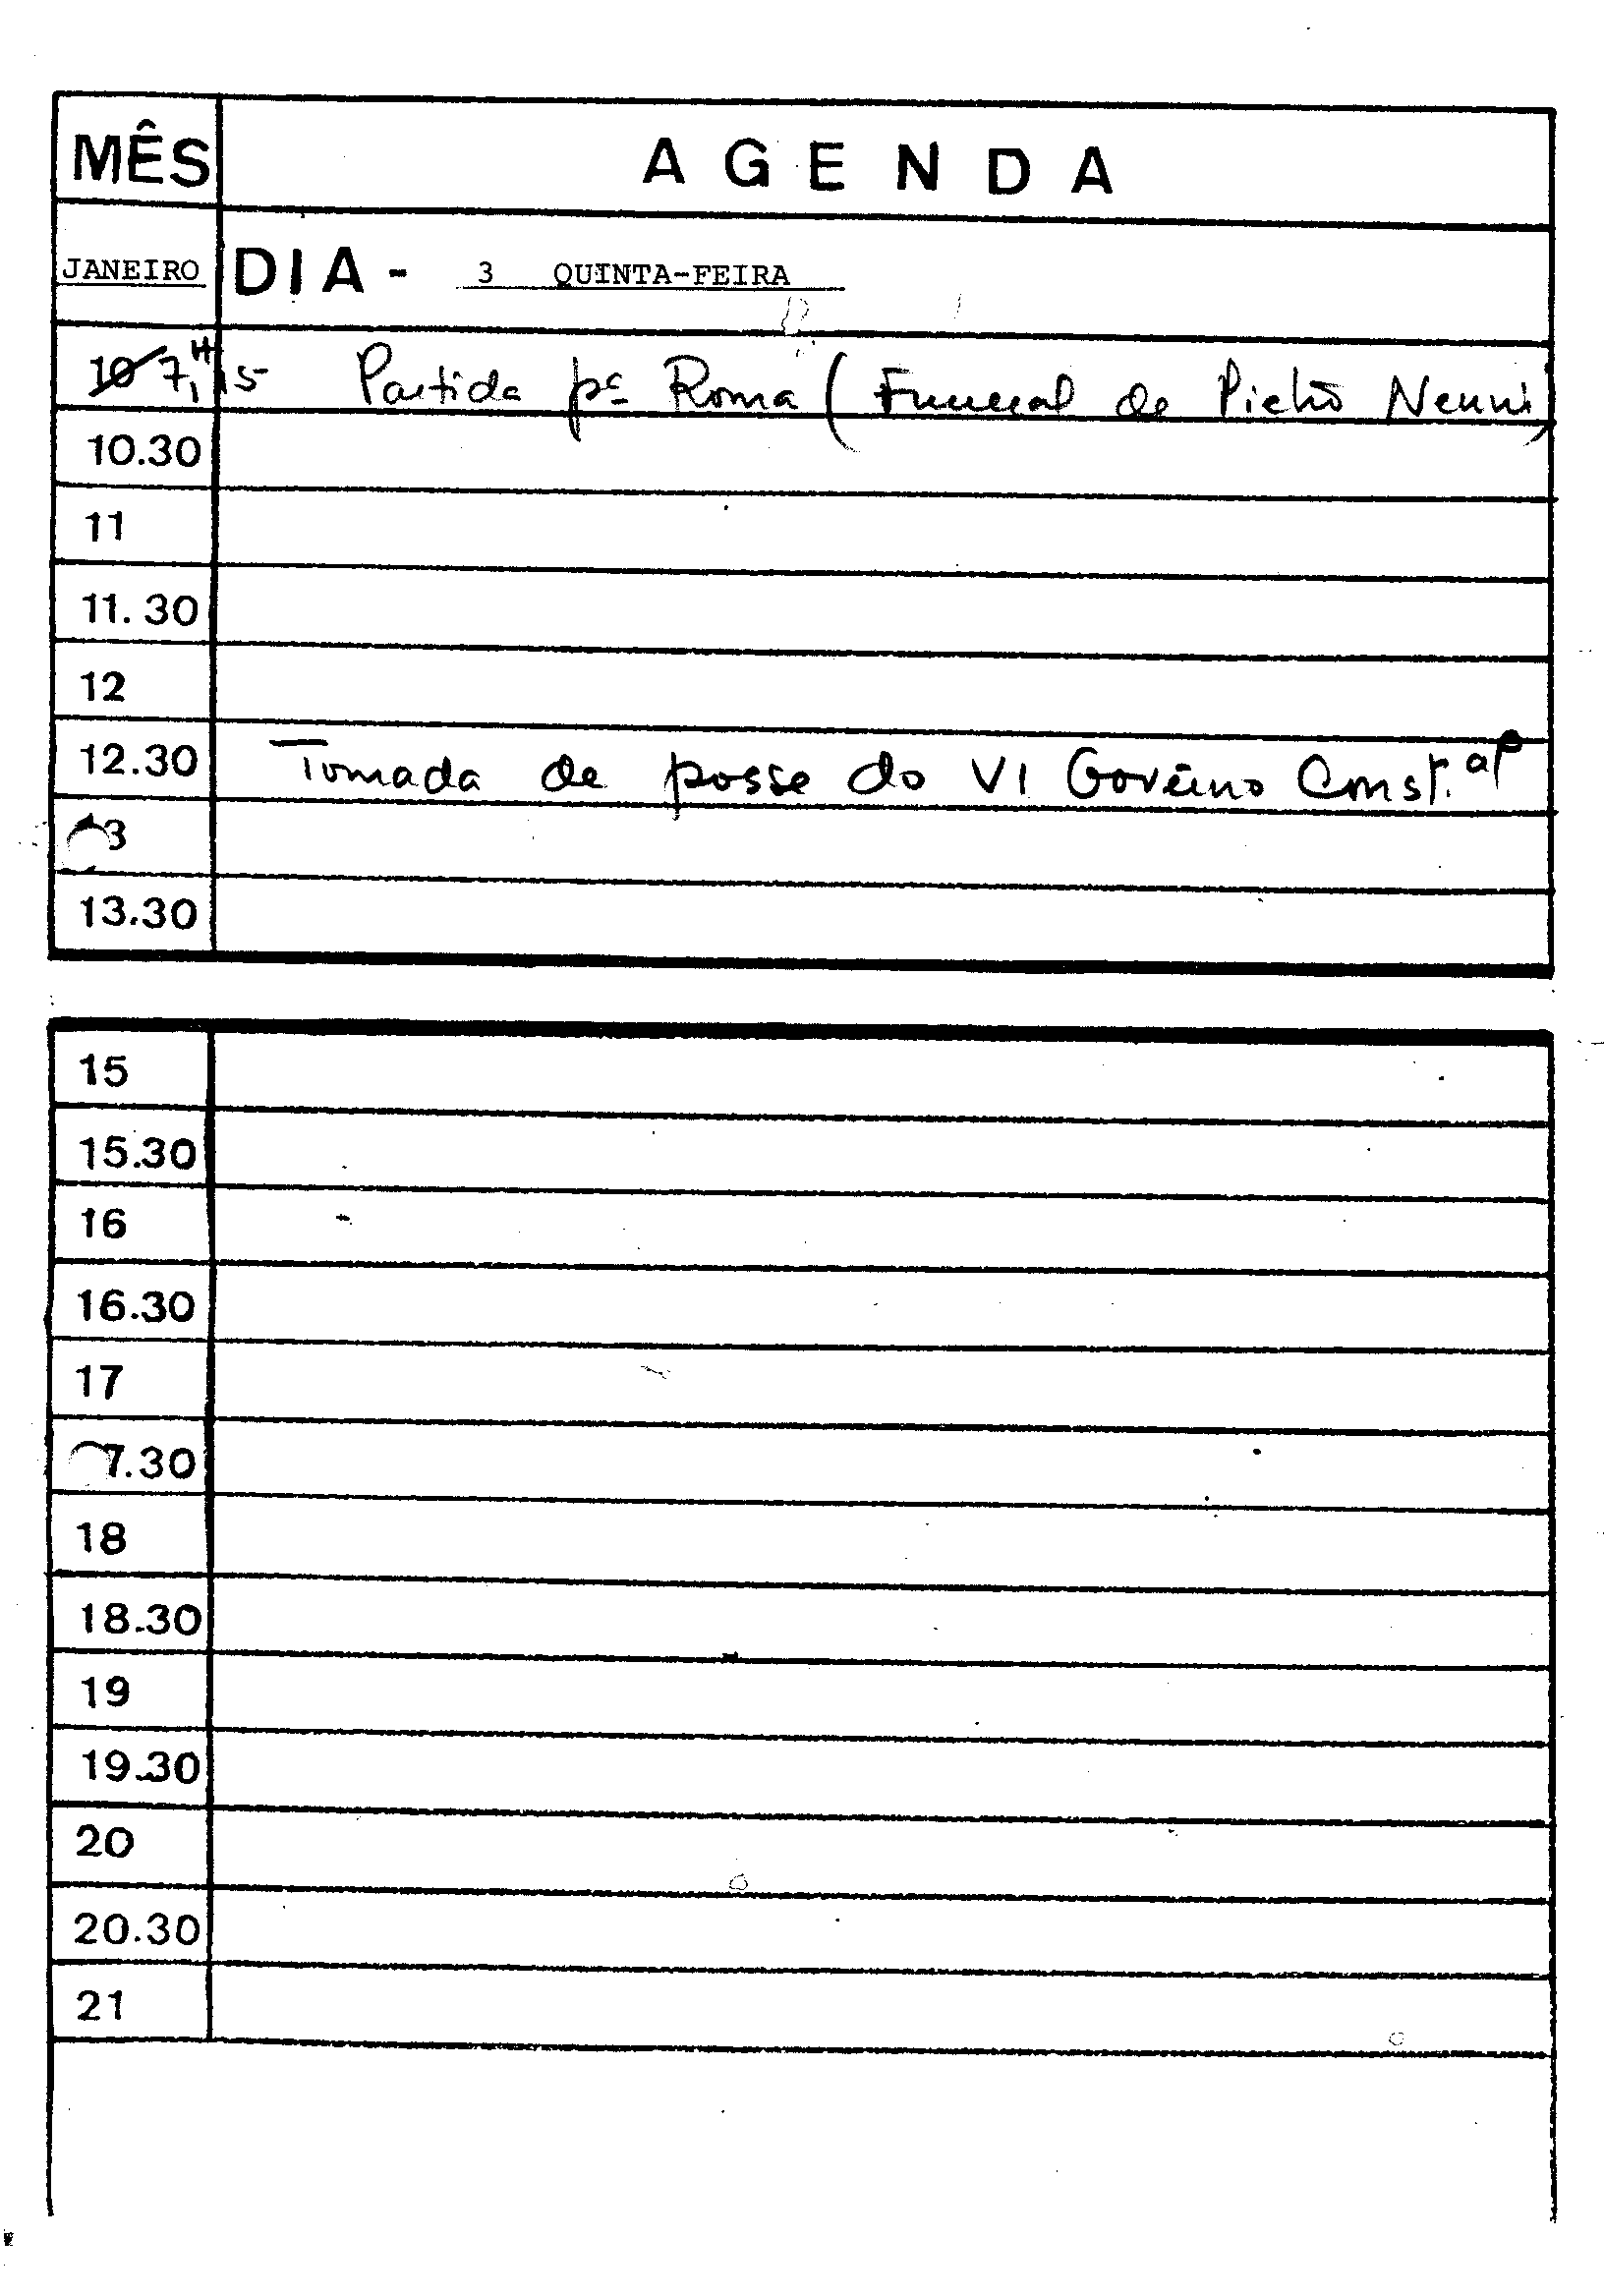 MÊS AGENDA
JANEIRO DIA - 3 QUINTA-FEIRA
10 7,H15 Partida pª Roma (Funeral de Pietro Nenni)
10.30
11
11.30
12
12.30 Tomada de posse do VI Govêrno Const.al
3
13.30
15
15.30
16
16.30
17
7.30
18
18.30
19
19.30
20
20.30
21